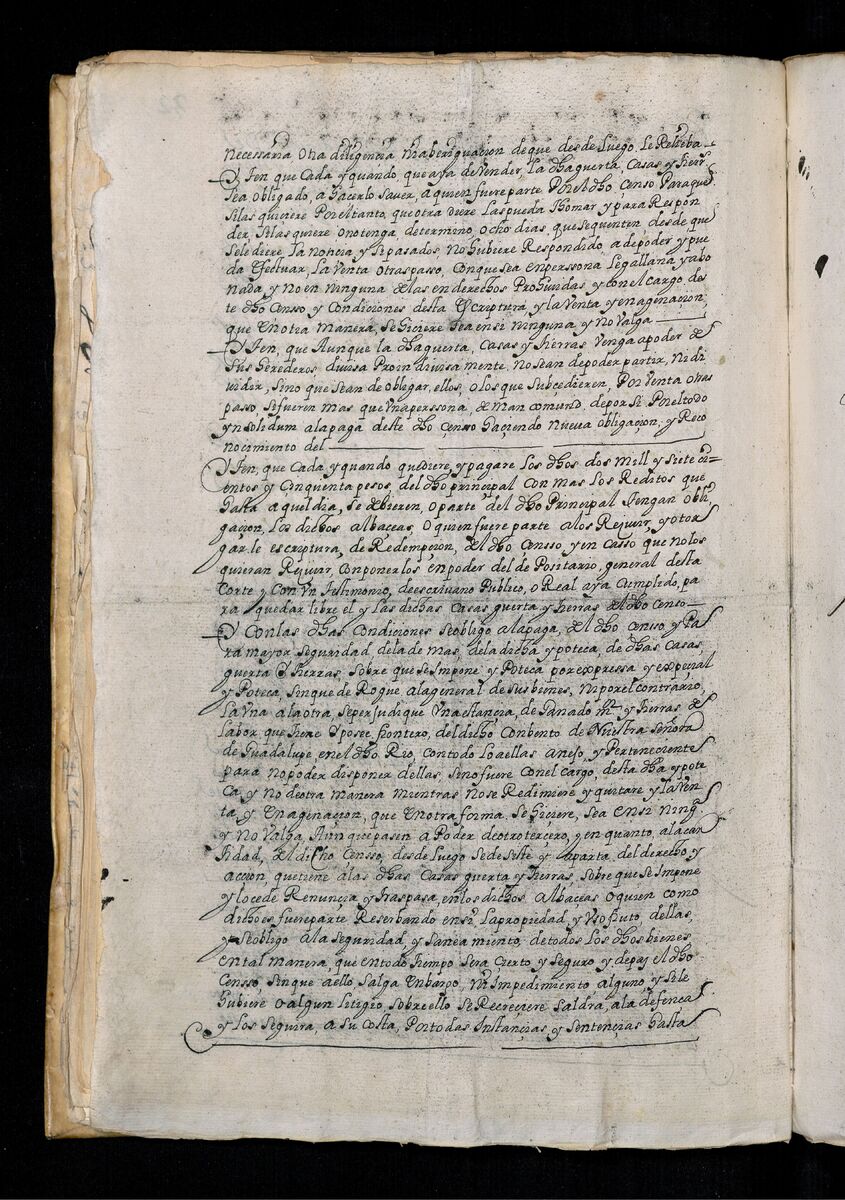 necessaria otra diligencia ni aberiguacion de que desde luego le Relieba
Y Iten que cada y quando que aya de Vender, la dha guerta, casas y tierrs
sea obligado, a hacerlo saver, a quien fuere parte Por el dho censo Para que
silas quiciere Por el tanto, que otra diere las pueda thomar y para Respon
der, si las quiere o no tenga, determino, ocho dias, que sequenten desde que
sele diere, la noticia y si pasados, no hubiere Respondido, a de poder y pue
da efectuar, la Venta o traspasso, con que sea en perssona Legallana y abo
nada, y no en ninguna de las en derechos Prohividas y con el cargo, des
te dho censso y condiciones desta escriptura, y la Venta y enagenacion,
que en otra manera, se hiciere sea en si ninguna y no Valga
Y Iten, que Aunque la dha guerta, casas y tierras Venga a poder de
sus herederos divissa Proindivissa mente, no sean de poder partir, ni di
vidir, sino que sean de obligar, ellos, o los que subcedieren, Por Venta o tras
passo si fueren mas que Vna perssona, de man comund de por si Por el todo
yn solidum a la paga deste dho censso haciendo nueva obligacion, y Reco
nocimiento del
Y Iten, que cada y quando que diere, y pagare los dhos dos mill y siete ci-
entos y cinquenta pesos, del dho principal con mas los Reditos que
hasta aquel dia, se debieren, o parte del dho Principal tengan obli
gacion, los dichos albaceas, o quien fuere parte a los Recivir, y otor
gar le escriptura, de Redempcion, del dho censso y en casso que no los
quieran Recivir, con ponerlos en poder del de Positario, general desta
corte y con Vn testimonio, de escrivano Publico, o Real aya cumplido, pa
ra quedar libre el y las dichas casas guerta y tierras del dho censo
Y con las dhas condiciones se obligo a la paga, del dho censso y Pa
ra mayor seguridad de la de mas, de la dicha ypoteca, de dhas casas,
guerta y tierras sobre que se Impone y Poteca por expressa y expecial
y Poteca, sin que de Rogue, a la general de sus bienes, ni por el contrario,
la Vna a la otra, se perjudique Vna estancia, de Ganado mor y tierras de
labor que tiene y posee, frontero, del dicho conbento de Nuestra señora
de Guadalupe, en el dho Rio, con todo lo a ellas anejo, y Perteneciente
para no poder disponer dellas, sino fuere con el cargo, desta dha ypote
ca, y no de otra manera mientras no se Redimiere y quitare y la Ven
ta, y enagenacion, que en otra forma, se hiciere, sea en si ning
y no Valga, Aunque pasen a Poder de otro tercero, y en quanto, a la can
tidad, del dicho, censso, desde luego se desiste y aparta del derecho y
accion, que tiene a las dhas casas guerta y tierras, sobre que se Impone
y lo cede Renuncia y traspasa, en los dichos Albaceas o quien como
dicho es fuere parte Reserbando en si, la propiedad, y Vsofruto dellas,
y se obligo a la seguridad, y saneamiento, de todos los dhos bienes
en tal manera, que en todo tiempo sera cierto y seguro y de paz el dho
censso, sin que a ello, salga enbargo, ni Impedimiento alguno y si le
hubiere o algun litigio, sobre ello se Recreciere saldra, a la defenca
y los seguira a su costa, Por todas Instancias, y sentencias hasta